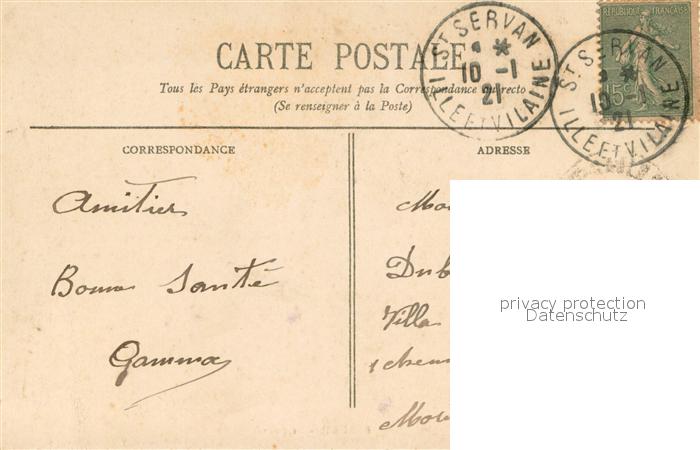 CARTE POSTALE
Tous les Pays étrangers n'acceptent pas la Correspondance au recto
(Se renseigner à la Poste)
ST SERVAN
10 -1
21
ILLE ET VILAINE
ST SERVAN
10 -1
21
ILLE ET VILAINE
RÉPUBLIQUE FRANÇAISE
15c
CORRESPONDANCE
Amitiés
Bonne Santé
Gamma
ADRESSE
Dub
Villa
privacy protection
Datenschutz